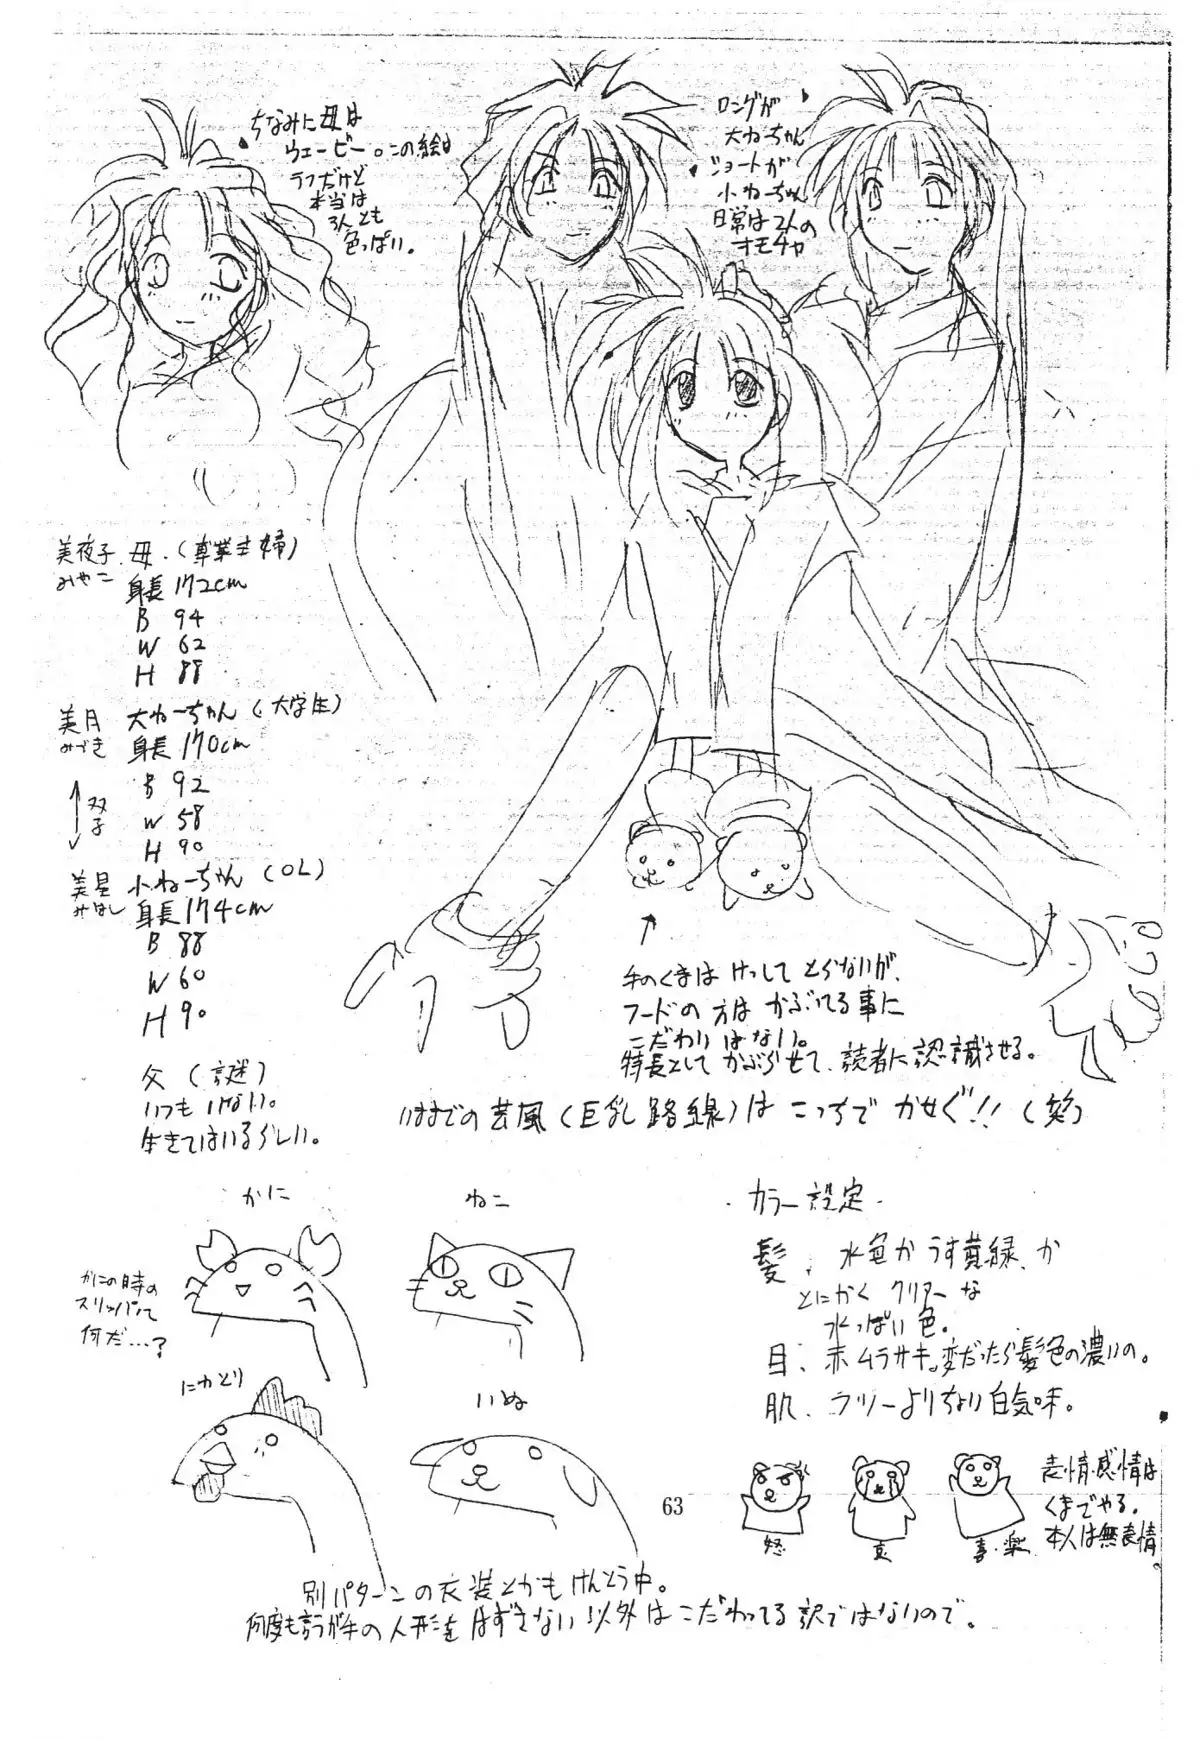 ちなみに母は
ウェービー。この絵は
ラフだけど
本当は
3人とも
色っぱい。
ロングが
大ねーちゃん
ショートが
小ねーちゃん
日常は2人の
オモチャ
美夜子 母.(専業主婦)
みやこ 身長172cm
B 94
W 62
H 88
美月 大ねーちゃん(大学生)
みづき 身長170cm
B 92
双子
W 58
H 90
美星 小ねーちゃん(OL)
みほし 身長174cm
B 88
W 60
H 90
父(謎)
いつもいない。
生きてはいるらしい。
手のくまはけっしてとらないが、
フードの方はかぶってる事に
こだわりはない。
特長としてかぶらせて、読者に認識させる。
いままでの芸風(巨乳路線)はこっちでかせぐ!!(笑)
かに
ねこ
かにの時の
スリッパって
何だ…?
にわとり
いぬ
・カラー設定・
髪、水色かうす黄緑、か
とにかくクリアーな
水っぽい色。
目、赤ムラサキ。変だったら髪色の濃いの。
肌、ラツーよりちょい白気味。
表情・感情は
くまでやる。
本人は無表情。
怒
哀
喜・楽
63
別パターンの衣装とかもけんとう中。
何度も言うが手の人形をはずさない以外はこだわってる訳ではないので。